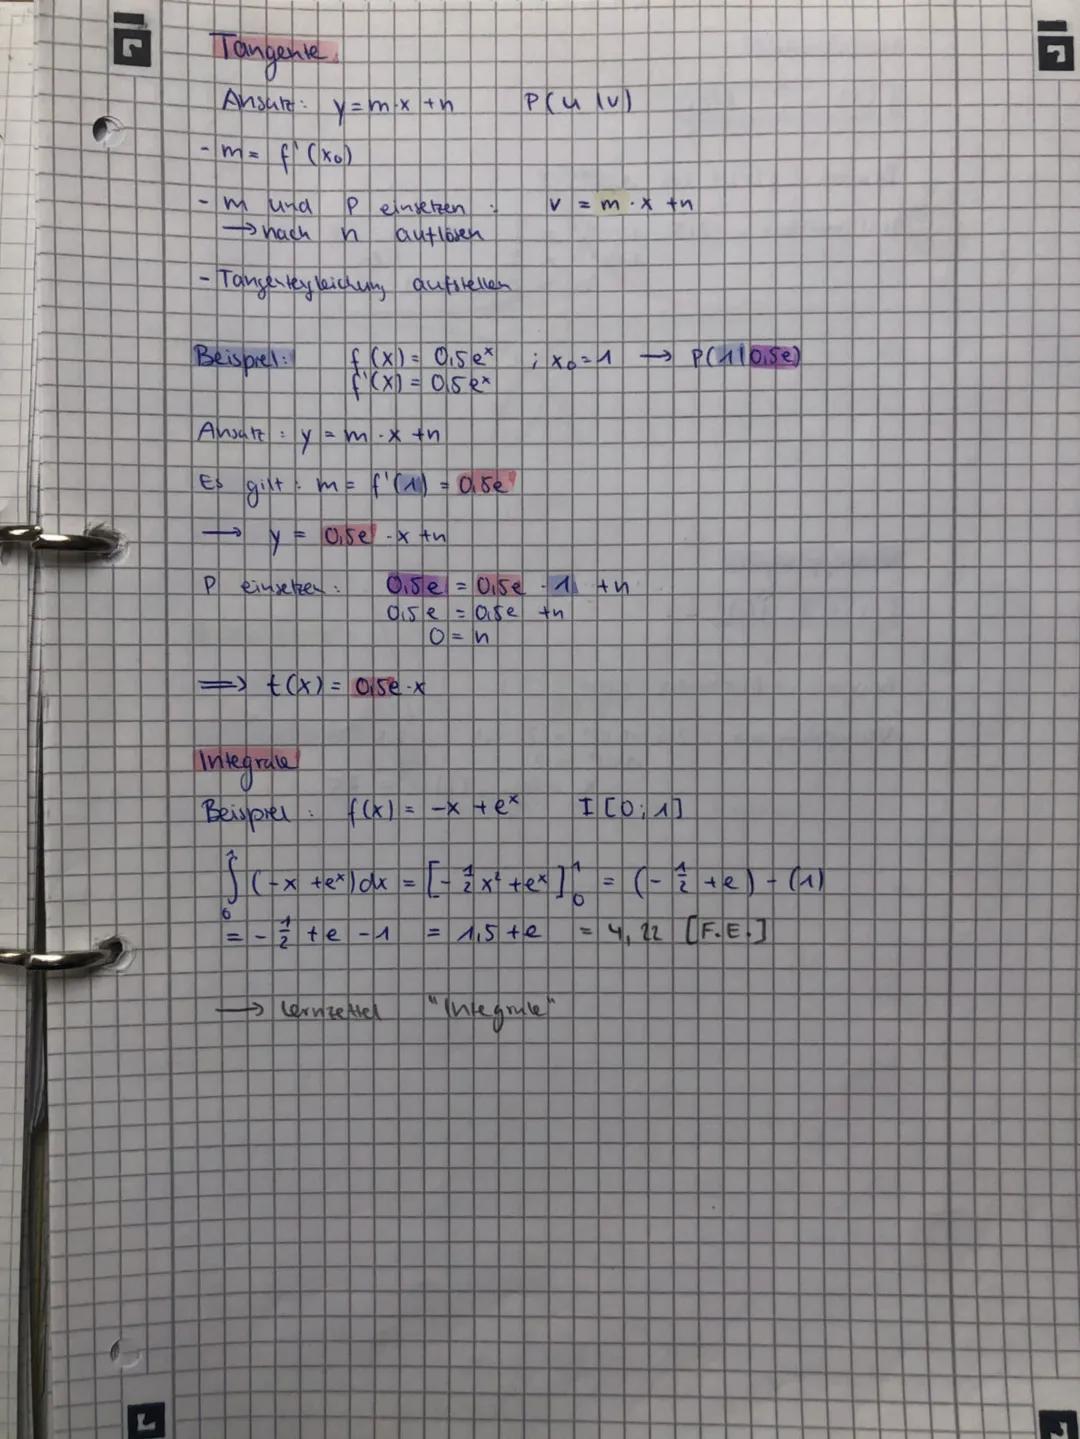 Tangente
Ansatz: y = m·x + n P(u|v)
- m = f'(x₀)
- m und P einsetzen: v = m·x + n
→ nach n auflösen
- Tangentengleichung aufstellen
Beispiel: f(x) = 0,5eˣ ; x₀ = 1 → P(1|0,5e)
f'(x) = 0,5eˣ
Ansatz: y = m·x + n
Es gilt: m = f'(1) = 0,5e¹
→ y = 0,5e¹·x + n
P einsetzen: 0,5e = 0,5e · 1 + n
0,5e = 0,5e + n
0 = n
⟹ t(x) = 0,5e·x
Integrale
Beispiel: f(x) = -x + eˣ I [0;1]
∫₀¹ (-x + eˣ)dx = [-½x² + eˣ]₀¹ = (-½ + e) - (1)
= -½ + e - 1 = 1,5 + e = 4,22 [F.E.]
→ Lernzettel "Integrale"